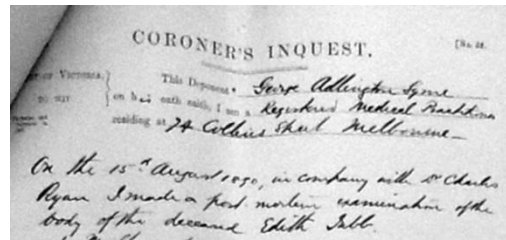 CORONER'S INQUEST.
[No. 24.
OF VICTORIA, } This Deponent George Adlington Syme
TO WIT on his oath saith, I am a Registered Medical Practitioner
residing at 74 Collins Street Melbourne
On the 15th August 1890, in company with Dr Charles
Ryan I made a post mortem examination of the
body of the deceased Edith Tubb.